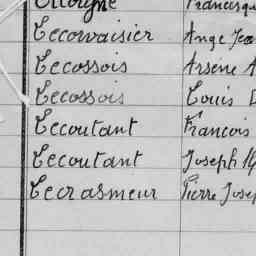 Lecorvaisier Ange Jea
Lecossois Arsène A
Lecossois Louis
Lecoutant François
Lecoutant Joseph M
Lecrasmeur Pierre Josep